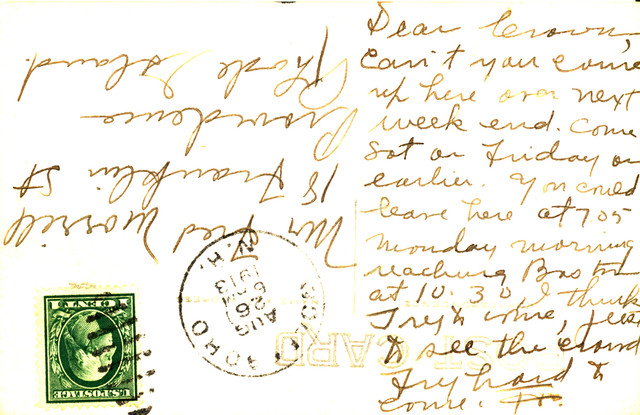 Dear Crown,
Can't you come
up here over next
week end. Come
Sat or Friday or
earlier. You could
leave here at 7 05
Monday morning
reaching Boston
at 10.30 I think
Try to come, just
to see the crowd
Try hard to
come.
Mr Fred Morrill
18 Franklin St
Providence
Rhode Island.
POST CARD
BORO
N.H.
AUG
26
1913
U.S. POSTAGE
1 CENT 1